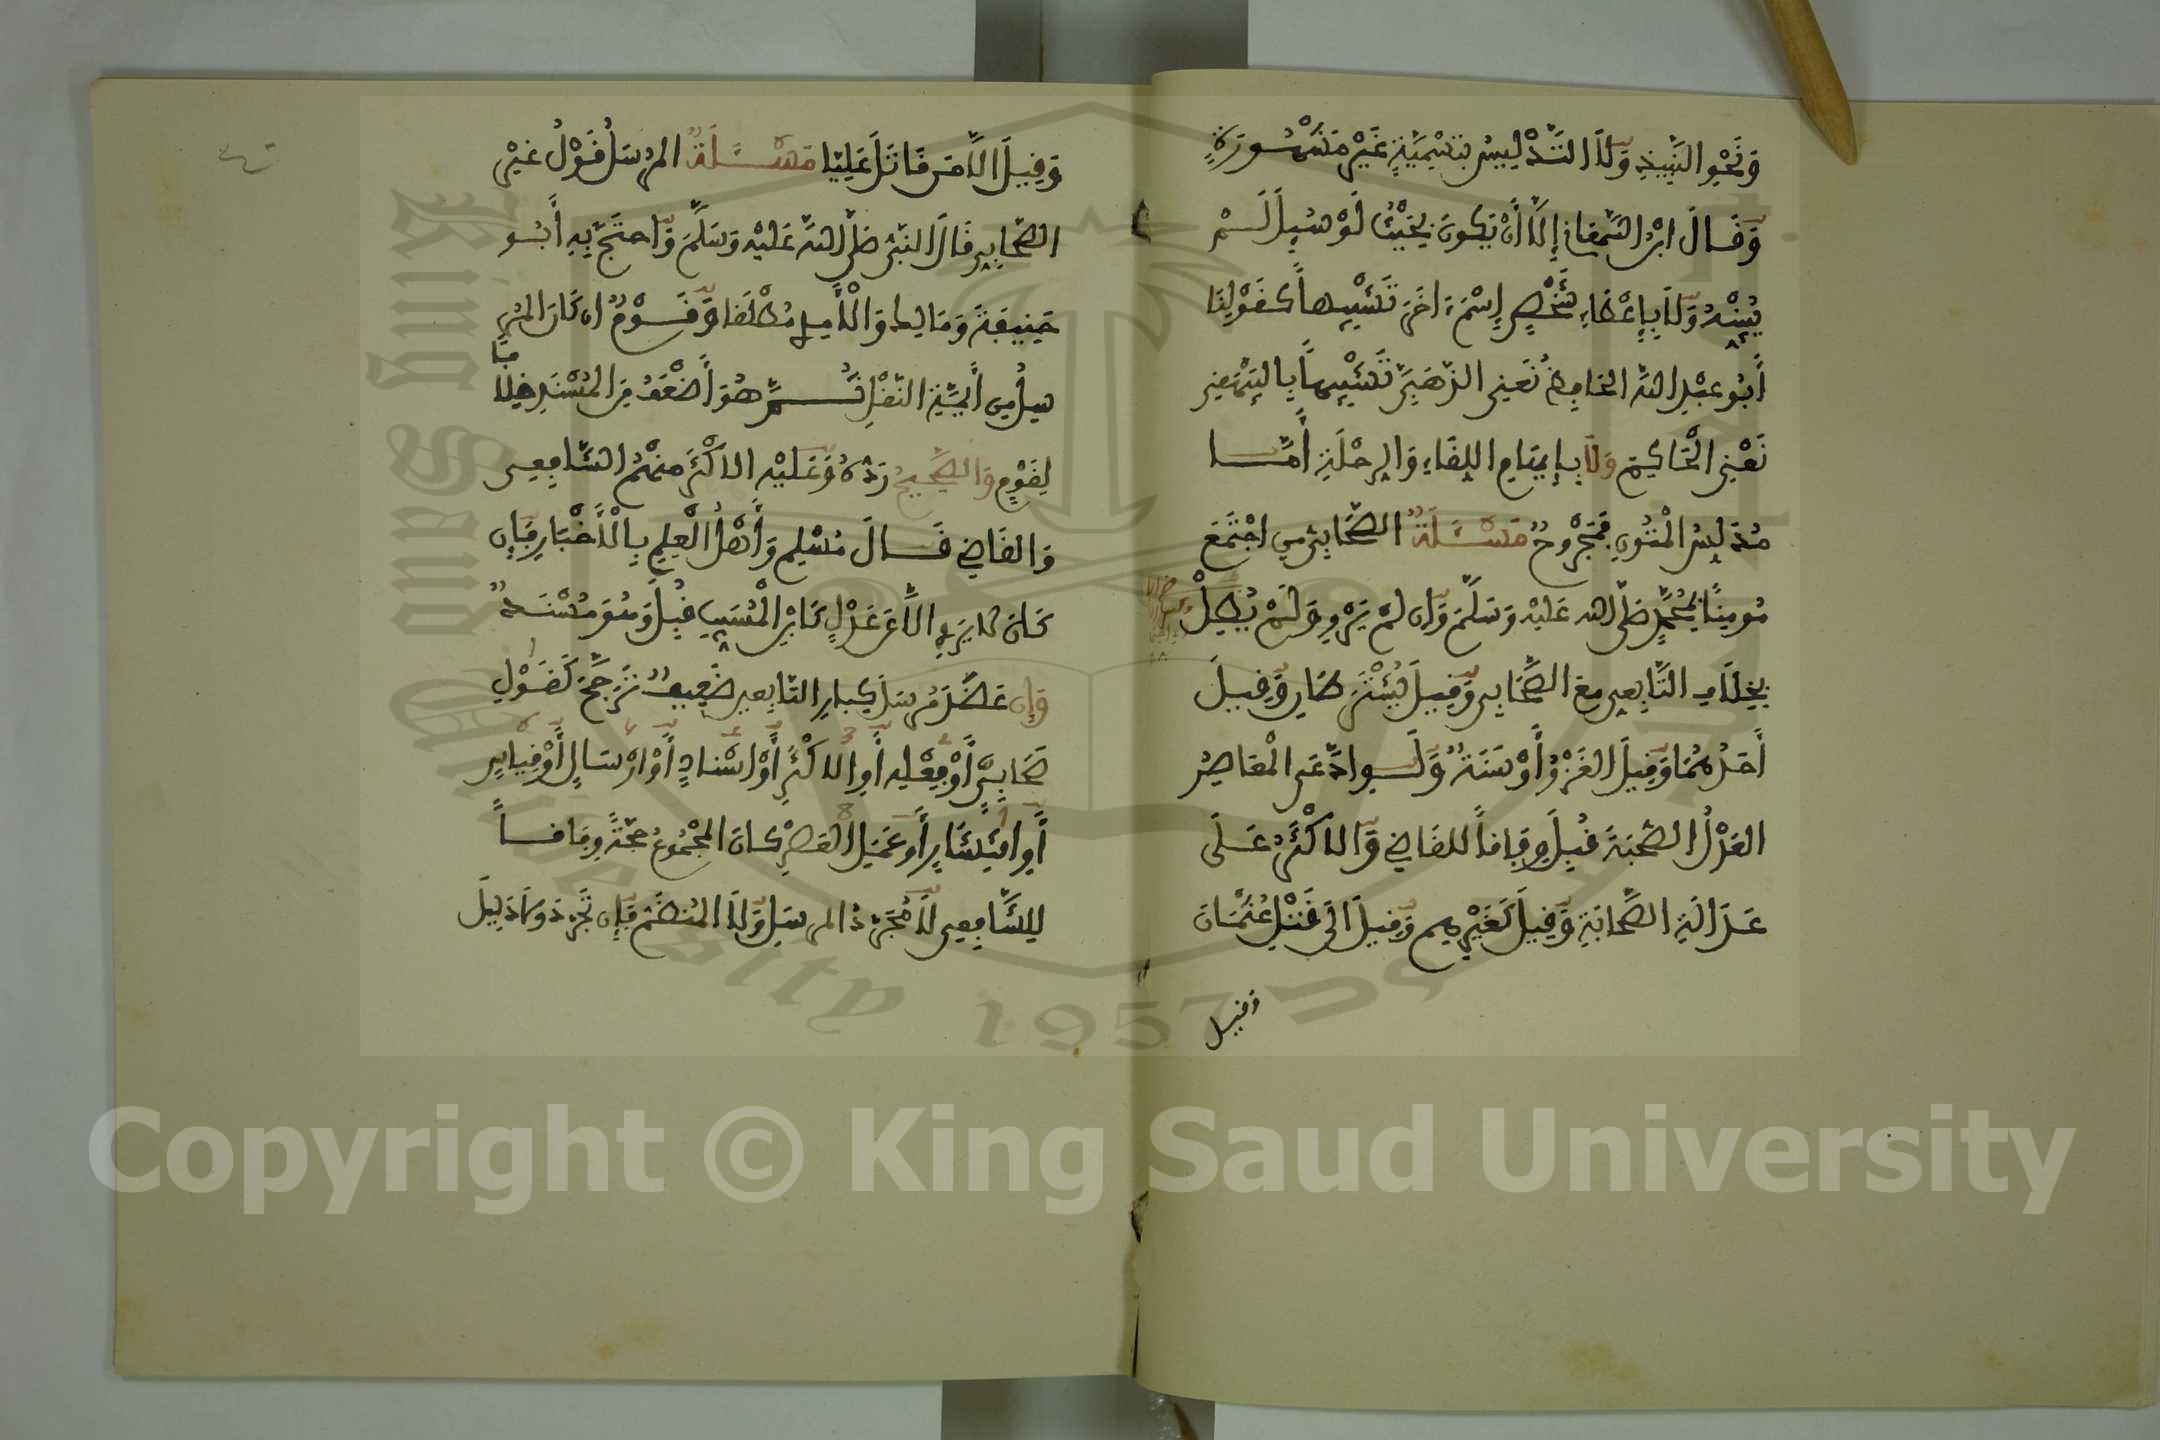 وَنَحْوِ النَّبِيذِ وَلَا التَّدْلِيسُ بتَسْمِيَّةٍ غَيْرِ مَشْهُورَةٍ
وَقَالَ ابْنُ السَّمْعَانِ إِلَّا أَنْ يَكُونَ بِحَيْثُ لَوْ سُيِلَ لَمْ
يُبَيِّنْهُ وَلَا بِإِعْطَاءِ شَخْصٍ إِسْمَ ءَاخَرَ تَشْبِيهاً كَقَوْلِنَا
أَبُو عبْدِ اللهِ الحَافِظُ نَعْنِي الذَّهَبِيَّ تَشْبِيهاً بِالبَيْهَقِي
نَعْنِي الْحَاكِمَ وَلَا بِإِيهَامِ اللِقَاءِ وَالرِحْلَةِ أَمَّا
مُدَلِّسُ الْمُتُونِ فَمَجْرُوحٌ مَسْئَلَةٌ الصَّحَابِيُّ مَنِ اجْتَمَعَ
مُومِنًا بِمُحَمَّدٍ صَلَّى الله عَلَيْهِ وَسَلَّمَ وَإِن لَمْ يَرْوِ وَلَمْ يُطِلْ
بِخِلَافِ التَّابِعِيِ مَعَ الصَّحَابِيِ وَقِيلَ يُشْتَرَطَانِ وَقِيلَ
أَحَدُهُمَا وَقِيلَ الغَزْوُ أَوْ سَنَةٌ وَلَوِ ادَّعَى المْعَاصِرُ
العَدْلُ الصُّحْبَةَ قُبِلَ وِفَاقاً لِلقَاضِي وَالاكْثَرُ عَلَى
عَدَالَةِ الصَّحَابَةِ وَقِيلَ كَغَيْرِهِم وَقِيلَ الَى قَتْلِ عُثْمَانَ
وقيل
وَقِيلَ الَّا مَن قَاتَلَ عَلِيًّا مَسْئَلَةٌ المُرْسَلُ قَوْلُ غَيْرِ
الصَّحَابِيِ قَالَ النَّبِيُّ صَلَّى اللهُ عَلَيْهِ وَسَلَّمَ وَاحتَجَّ بِهِ أَبُو
حَنِيفَةَ وَمَالِك وَالْأَمِدِي مُطْلَقًا وَقَوْمٌ ان كَانَ المُرْ
سِلُ مِن أَيِمَّةِ النَّقْلِ ثُمَّ هُوَ أَضْعَفُ مِنَ المُسْنَدِ خِلَافًا
لِقَوْمٍ وَالصَّحِيحُ رَدُّهُ وَعَلَيْهِ الاكْثَرُ مِنْهُمُ الشَّافِعِي
وَالقَاضِي قَالَ مُسْلِم وَأَهْلُ الْعِلِمِ بِالْأَخْبَارِ فَإِن
كَانَ لا يَرْوِي الَّا عَن عَدْلٍ كَابْنِ الْمُسَيِّبِ قُبِلَ وَهُوَ مُسْنَدٌ
وَإِن عَضَّدَ مُرْسَلَ كِبَارِ التَّابِعِينَ ضَعِيفٌ يُرَجِّحُ كَقَوْلِ
صَحَابِيٍّ أَوْ فِعْلِهِ أَوِ الاكْثَرِ أَوْ اسْنَادٍ أَوْ ارْسَالٍ أَوْ قِيَاسٍ
أَوِ انْتِشَارٍ أَو عَمَلِ العَصْرِ كَانَ المَجْمُوعُ حُجَّةً وِفَاقاً
لِلشَّافِعِي لَا مُجَرَّدُ المرسَلِ وَلَا المُنضَمِّ فَإِن تَجَرَّدَ وَلَا دَلِيلَ
Copyright © King Saud University
King Saud University 1957